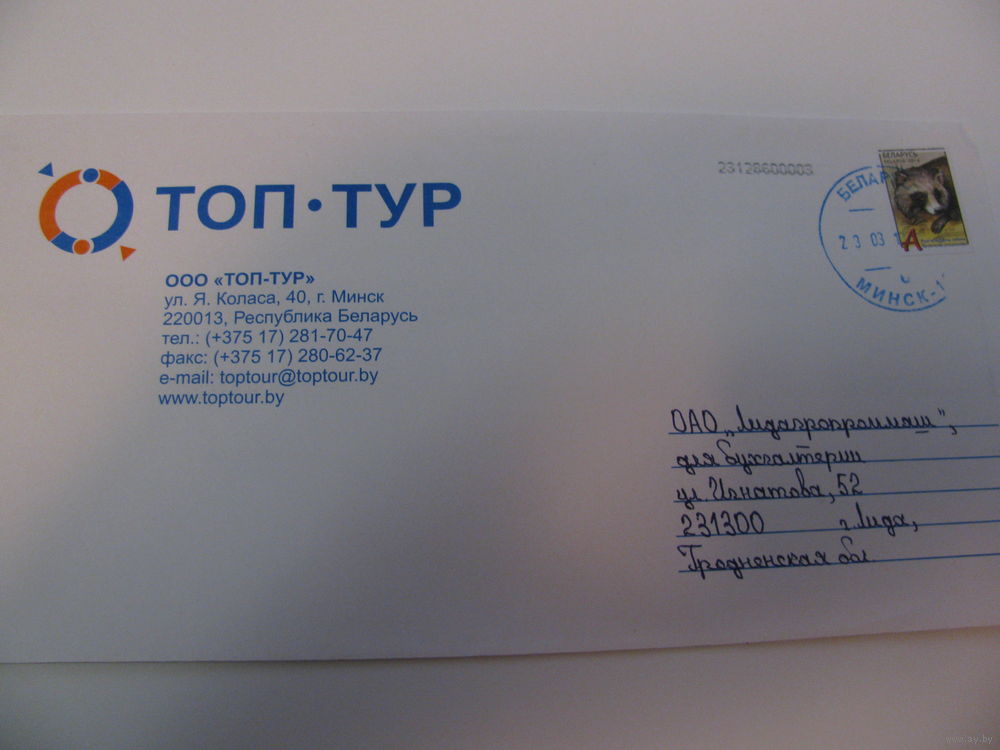 ТОП·ТУР
ООО «ТОП-ТУР»
ул. Я. Коласа, 40, г. Минск
220013, Республика Беларусь
тел.: (+375 17) 281-70-47
факс: (+375 17) 280-62-37
e-mail: toptour@toptour.by
www.toptour.by
23128600003
БЕЛАРУСЬ
А
БЕЛАР
23 03 1
МИНСК-1
ОАО „Лидагропроммаш",
для бухгалтерии
ул. Игнатова, 52
231300 г. Лида,
Гродненская обл.
www.ay.by